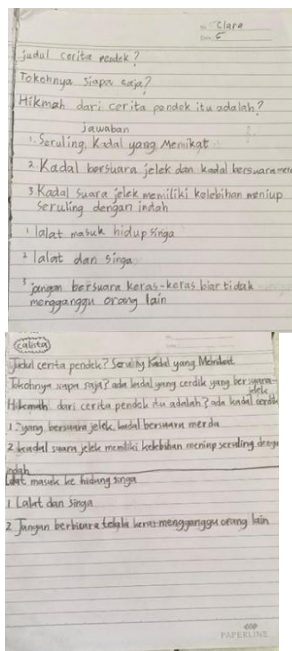 No: Clara
Date: 5
judul cerita pendek?
Tokohnya siapa saja?
Hikmah dari cerita pendek itu adalah?
jawaban
1. Seruling Kadal yang Memikat
2. Kadal borsuara jelek dan kadal bersuara mer
3 Kadal suara jelek memiliki kelebihan meniup
seruling dengan indah
1 lalat masuk hidup singa
2 lalat dan singa
3 jangan bersuara keras-keras biar tidak
mengganggu orang lain
calista
Judul cerita pendek? Seruling Kadal yang Memikat
Tokohnya siapa saja? ada kadal yang cerdik yang bersuara
jelek
Hikmah dari cerita pendek itu adalah? ada kadal cerdik
1. yang bersuara jelek, kadal bersuara merda
2 kadal suara jelek memiliki kelebihan meniup seruling denga
indah
Lalat masuk ke hidung singa
1 Lalat dan singa
2 Jangan berbicara keras mengganggu orang lain
PAPERLINE